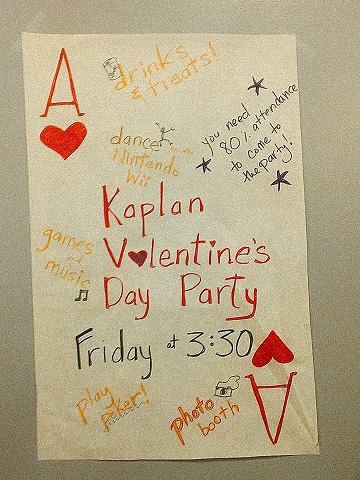 A
drinks
& treats!
you need
80% attendance
to come to
the party!
dance
Nintendo
Wii
Kaplan
Valentine's
Day Party
games
and
music
Friday at 3:30
play
poker!
photo
booth
A